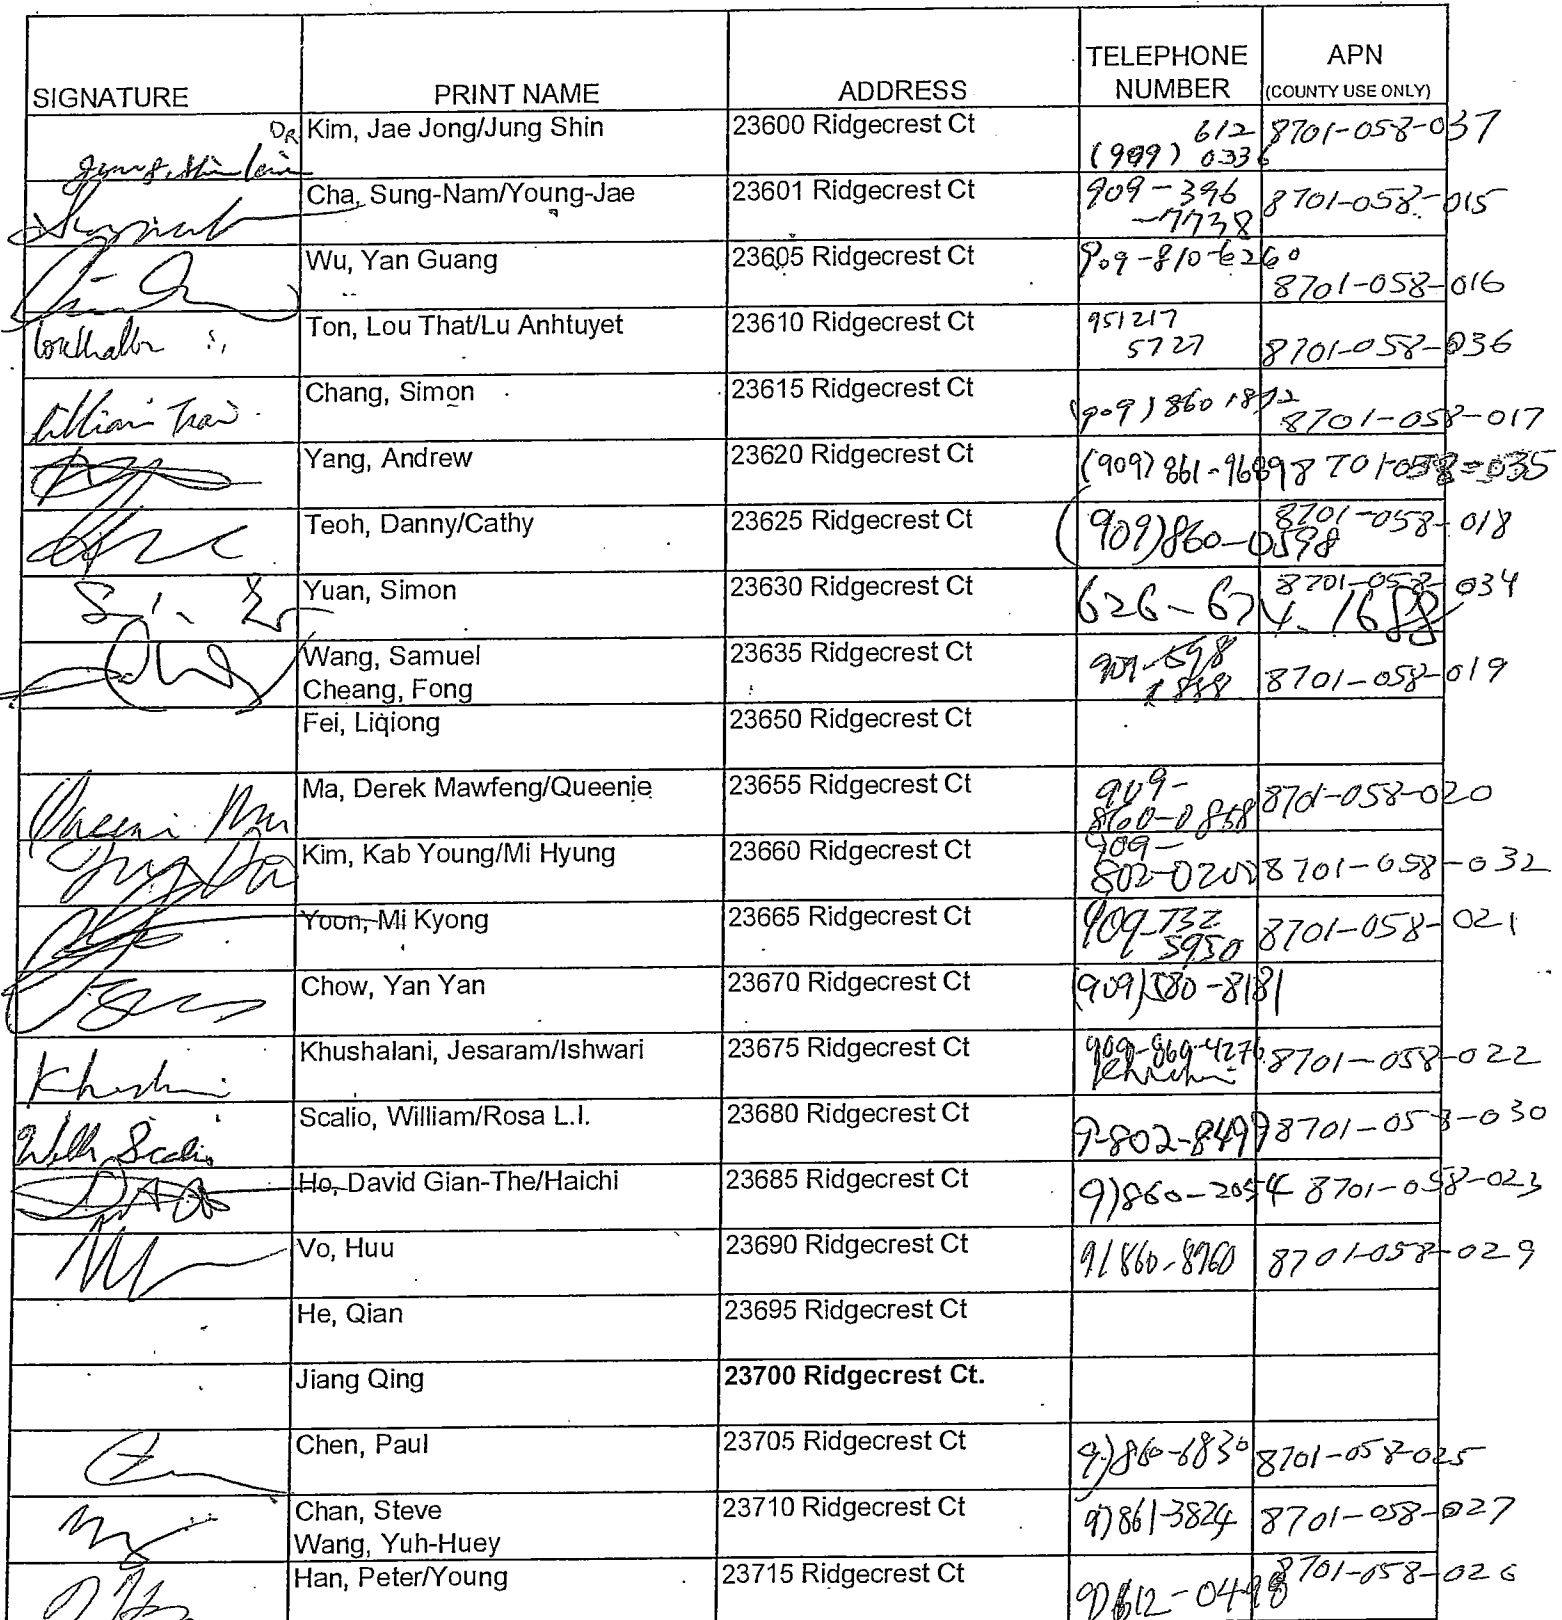 SIGNATURE PRINT NAME ADDRESS TELEPHONE NUMBER APN (COUNTY USE ONLY)
DR Kim, Jae Jong/Jung Shin 23600 Ridgecrest Ct (909) 612 0336 8701-058-037
Cha, Sung-Nam/Young-Jae 23601 Ridgecrest Ct 909-396-7738 8701-058-015
Wu, Yan Guang 23605 Ridgecrest Ct 909-810-6260 8701-058-016
Ton, Lou That/Lu Anhtuyet 23610 Ridgecrest Ct 951 217 5727 8701-058-036
Chang, Simon 23615 Ridgecrest Ct (909) 860 1872 8701-058-017
Yang, Andrew 23620 Ridgecrest Ct (909) 861-9689 8701-058-035
Teoh, Danny/Cathy 23625 Ridgecrest Ct (909)860-0598 8701-058-018
Yuan, Simon 23630 Ridgecrest Ct 626-674-1688 8701-058-034
Wang, Samuel
Cheang, Fong 23635 Ridgecrest Ct 8701-058-019
Fei, Liqiong 23650 Ridgecrest Ct
Ma, Derek Mawfeng/Queenie 23655 Ridgecrest Ct 909-860-0858 8701-058-020
Kim, Kab Young/Mi Hyung 23660 Ridgecrest Ct 909- 8701-058-032
Yoon, Mi Kyong 23665 Ridgecrest Ct 909-732 5950 8701-058-021
Chow, Yan Yan 23670 Ridgecrest Ct (909)580-8181
Khushalani, Jesaram/Ishwari 23675 Ridgecrest Ct 909-869-4276 8701-058-022
Will Scalio Scalio, William/Rosa L.I. 23680 Ridgecrest Ct 9-802-8499 8701-058-030
Ho, David Gian-The/Haichi 23685 Ridgecrest Ct 9)860-2054 8701-058-023
Vo, Huu 23690 Ridgecrest Ct 9/860-8960 8701-058-029
He, Qian 23695 Ridgecrest Ct
Jiang Qing 23700 Ridgecrest Ct.
Chen, Paul 23705 Ridgecrest Ct 9)860-6830 8701-058-025
Chan, Steve
Wang, Yuh-Huey 23710 Ridgecrest Ct 9)861-3824 8701-058-027
Han, Peter/Young 23715 Ridgecrest Ct 9)612-0498 8701-058-026